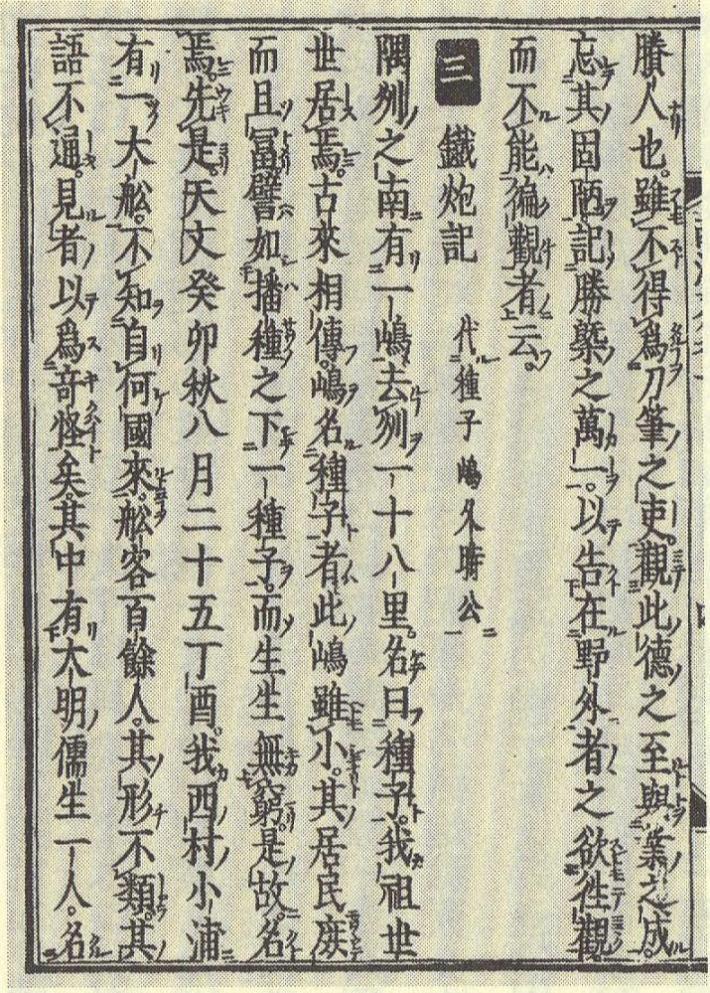 賸人也。雖不得為刀筆之吏。觀此德之至與業之成。
忘其固陋。記勝槩之萬一。以告在野外者之欲徃觀
而不能徧觀者云。
三 鐵炮記 代種子嶋久時公
隅州之南有一嶋。去州一十八里。名曰種子。我祖世
世居焉。古來相傳。嶋名種子者。此嶋雖小。其居民庶
而且冨。譬如播種之下一種子。而生生無窮。是故名
焉。先是。天文癸卯秋八月二十五丁酉。我西村小浦
有一大舩。不知自何國來。舩客百餘人。其形不類。其
語不通。見者以為奇怪矣。其中有大明儒生一人。名